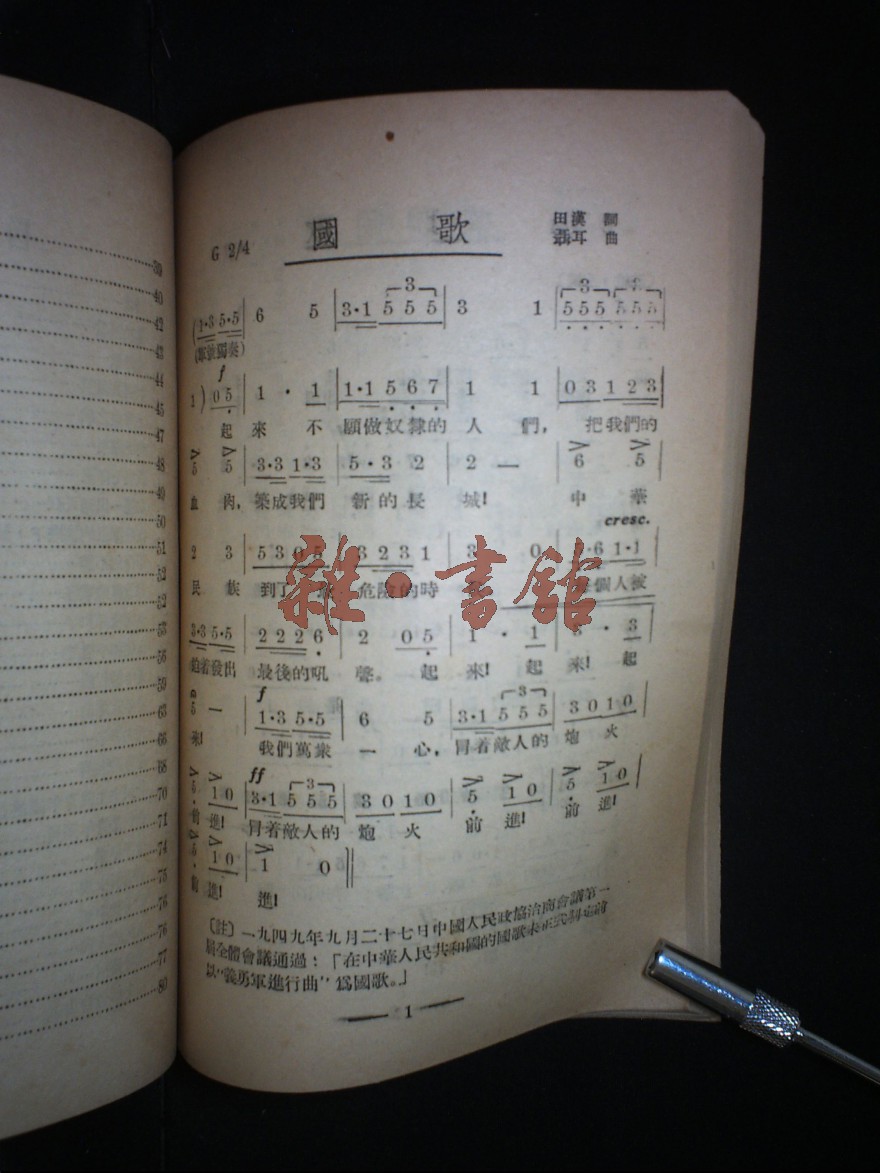 39
40
42
43
44
45
47
48
49
50
51
52
52
53
56
59
63
66
68
70
71
74
75
76
76
77
80
國 歌
G 2/4
田漢 詞
聶耳 曲
(1·3 5·5 | 6 5 | 3·1 5 5 5 | 3 1 | 5 5 5 5 5 5 |
3 3 3
(軍號獨奏)
f
1 ) 0 5 | 1 · 1 | 1·1 5 6 7 | 1 1 | 0 3 1 2 3 |
起 來 不 願做奴隸的 人 們, 把我們的
5 5 | 3·3 1·3 | 5 · 3 2 | 2 — | 6 5 |
血 肉, 築成我們 新的長 城! 中 華
cresc.
2 3 | 5 3 0 5 | 3 2 3 1 | 3 0 | ·6 1·1 |
民 族 到了 危險的時 個人被
雜·書館
3·3 5·5 | 2 2 2 6 | 2 0 5 | 1 · 1 | · 3 |
迫着發出 最後的吼 聲。 起 來! 起 來! 起
f
5 — | 1·3 5·5 | 6 5 | 3·1 5 5 5 | 3 0 1 0 |
3
來! 我們萬衆 一 心, 冒着敵人的 炮 火
ff
5 1 0 | 3·1 5 5 5 | 3 0 1 0 | 5 1 0 | 5 1 0 |
3
前 進! 冒着敵人的 炮 火 前 進! 前 進!
5 1 0 | 1 0 ‖
前 進! 進!
〔註〕一九四九年九月二十七日中國人民政協治商會議第一
屆全體會議通過:「在中華人民共和國的國歌未正式制定前
以“義勇軍進行曲”爲國歌。」
1